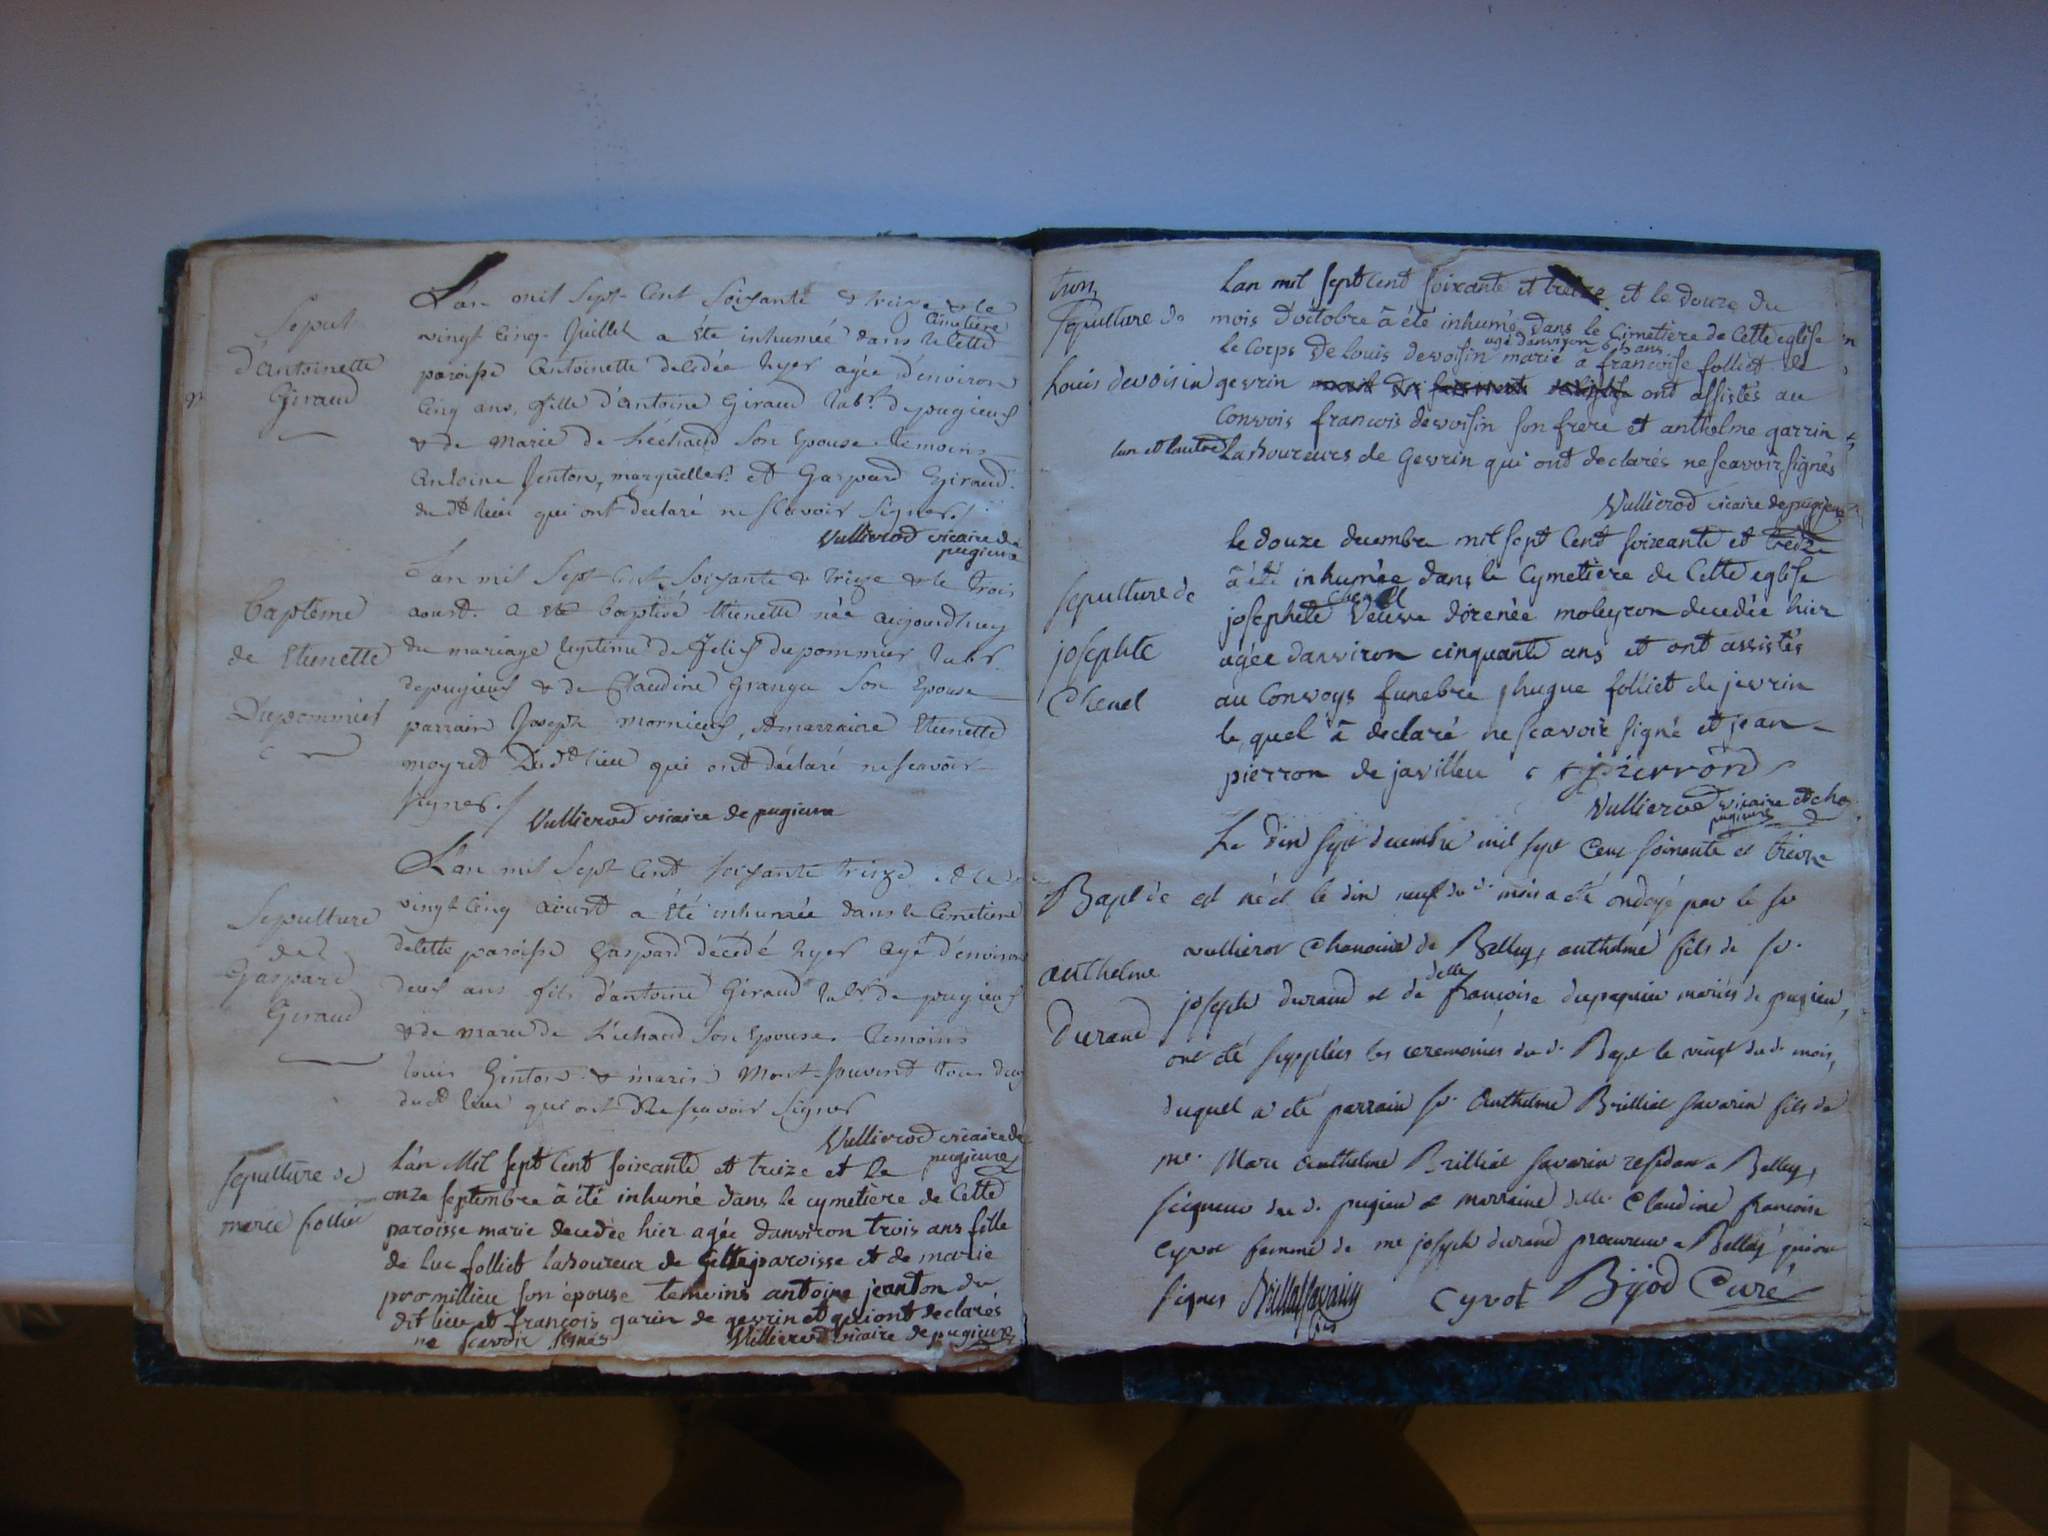 Sepult
d'antoinette
Giraud
Lan mil Sept Cent Soixante & treize & le
vingt Cinq Juillet a été inhumée dans le Cimetière de Cette
paroisse Antoinette decedée hyer agée d'environ
Cinq ans, fille d'antoine Giraud labr. de pugieux
& de marie de Léchaud Son Epouse temoins
Antoine Jenton, marguiller et Gaspard Giraud
du dt lieu qui ont declaré ne Scavoir Signer
Vullierod vicaire de
pugieux
baptême
de Etienette
Dupommier
Lan mil Sept Cent Soixante & treize & le trois
aoust a été baptisé Etienette née aujourdhuy
du mariage legitime de felix dupommier labr.
de pugieux & de Claudine Grange Son Epouse
parrain Joseph mornieux, & marraine Etienette
moyret Du dt lieu qui ont déclaré ne scavoir
signer
Vullierod vicaire de pugieux
Sepulture
de
Gaspard
Giraud
Lan mil Sept Cent Soixante treize et le
vingt Cinq aoust a été inhumée dans le Cimetiere
de Cette paroisse Gaspard décédé hyer agé d'environ
deux ans fils d'antoine Giraud labr de pugieux
& de marie de Léchaud Son Epouse. temoins
louis Genton & marin Mont-Jouvent tous deux
du dt lieu qui ont Dt ne Scavoir Signer
Vullierod vicaire de
pugieux
sepulture de
marie folliet
Lán Mil sept Cent soixante et treize et le
onze septembre à été inhumé dans le cymetiere de Cette
paroisse marie decedée hier agée danviron trois ans fille
de luc folliet laboureur de Cette paroisse et de marie
promillieu son épouse temoins antoine jeanton du
dit lieu et françois garin de gevrin et qui ont declarés
ne scavoir signés Vullierod vicaire de pugieux
sepulture de
Louis devoisin
Lan mil sept Cent soixante et treize et le douze du
mois d'octobre à été inhumé dans le Cimetiere de Cette eglise
agé danviron ans
le Corps de louis devoisin marié a francoise folliet de
gevrin ont assistés au
Convois francois devoisin son frere et anthelme garrin
lun et lautre Laboureurs de Gevrin qui ont declarés ne scavoir signés
Vullierod vicaire de pugieux
sepulture de
josephte
Chenel
le douze decembre mil sept Cent soixante et treize
à été inhumée dans le Cymetiere de Cette eglise
Chenel
josephete Veuve direnée moleyron decedée hier
agée danviron cinquante ans et ont assistés
au Convoys funebre hugue folliet de jevrin
le quel à declaré ne scavoir signé et jean
pierron de javilleu j pierron
Vullierod vicaire
pugieux
Bapt de
anthelme
Durand
Le dix sept decembre mil sept Cent soixante et treize
est né et le dix neuf du d. mois a été ondoyé par le sr
vullierod Chanoine de Belley, anthelme fils de sr.
joseph durand et de delle françoise dupapuin mariés de pugieu,
ont été supplées les ceremonies du d. Bapt le vingt du d. mois,
duquel a été parrain sr. Anthelme Brillat Savarin fils de
me. Marc Anthelme Brillat Savarin residan a Belley,
seigneur du d. pugieu et marraine delle Claudine françoise
Cyvot femme de me joseph durand procureur a Belley qui ont
signes Brillat Savarin
fils
Cyvot Bijod Curé